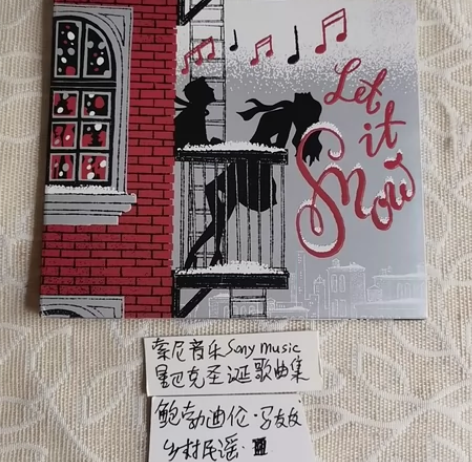 Let
it
Snow
索尼音乐Sony music
星巴克圣诞歌曲集
鲍勃迪伦·
乡村民谣·